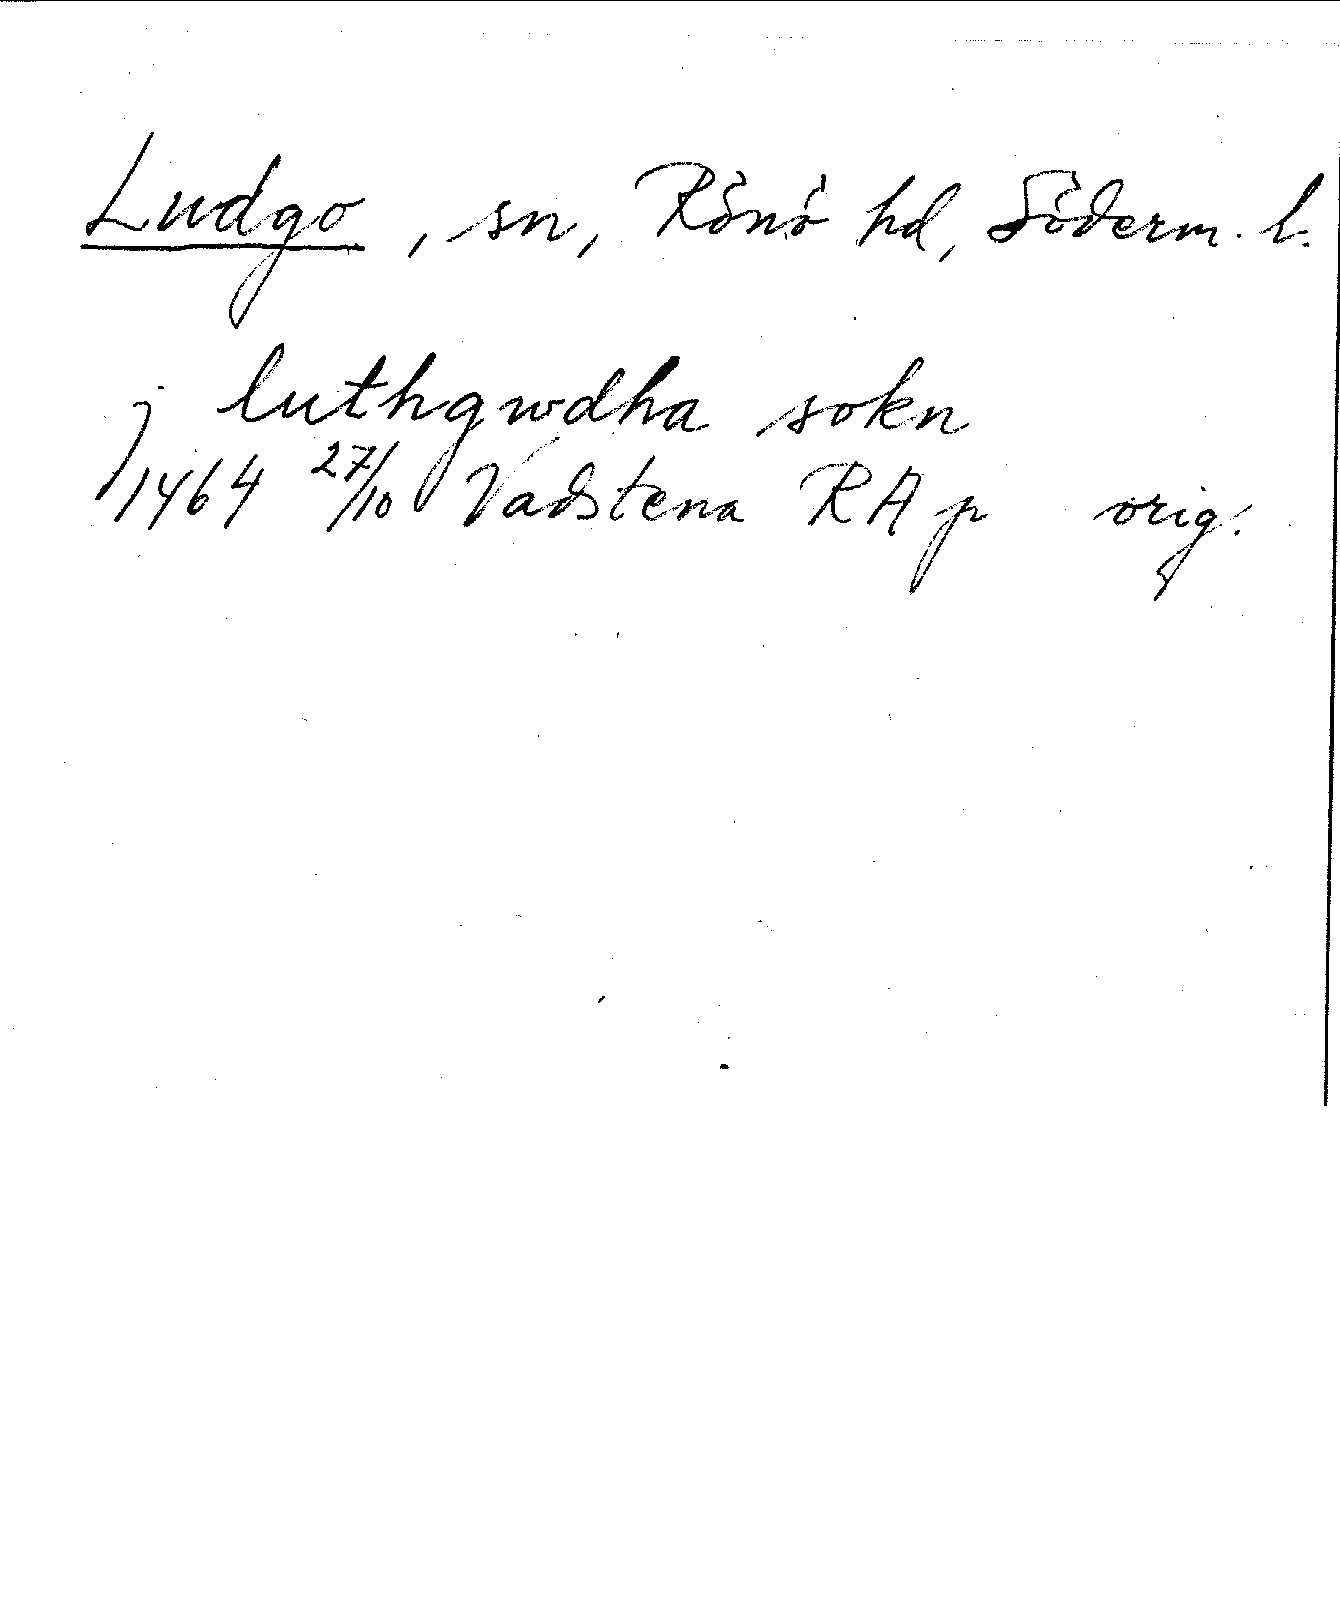 Ludgo, sn, Rönö hd, Söderm. l.
j luthgwdha sokn
1464 27/10 Vadstena RAp orig.